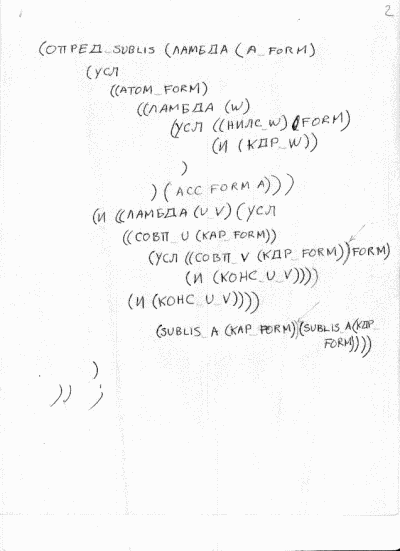 2
(ОПРЕД_SUBLIS (ЛАМБДА (A_FORM)
(УСЛ
((АТОМ_FORM)
((ЛАМБДА (W)
(УСЛ ((НИЛС_W) FORM)
(И (КДР_W))
)
) (ACC FORM A)))
(И ((ЛАМБДА (U_V) (УСЛ
((СОВП_U (КАР_FORM))
(УСЛ ((СОВП_V (КДР_FORM)) FORM)
(И (КОНС_U_V))))
(И (КОНС_U_V))))
(SUBLIS_A (КАР_FORM)) (SUBLIS_A (КДР_
FORM))))
)
)) ;